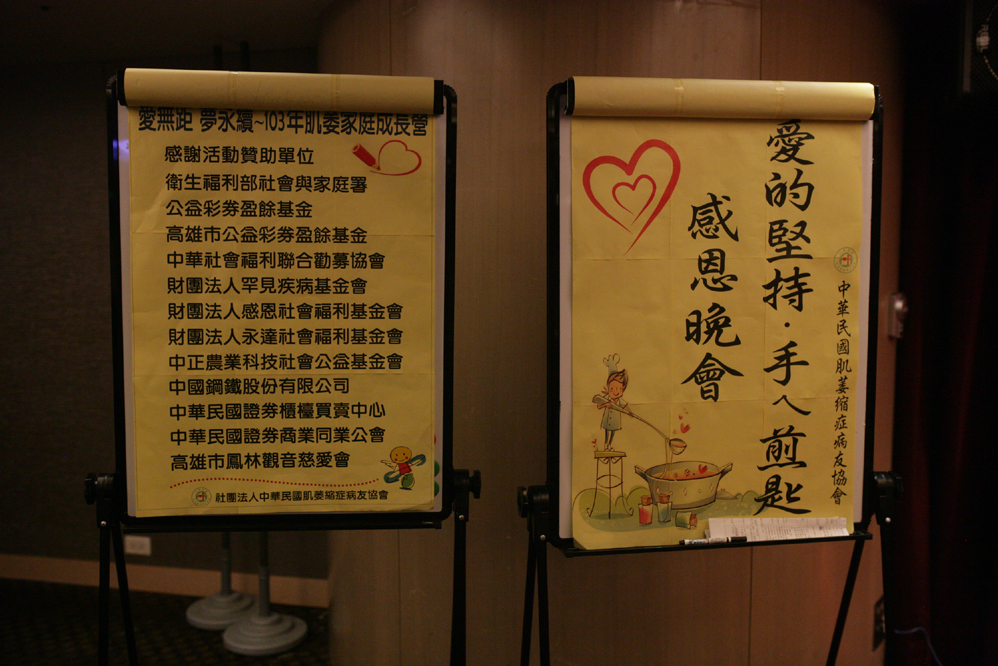 愛無距 夢永續~103年肌萎家庭成長營
感謝活動贊助單位
衛生福利部社會與家庭署
公益彩券盈餘基金
高雄市公益彩券盈餘基金
中華社會福利聯合勸募協會
財團法人罕見疾病基金會
財團法人感恩社會福利基金會
財團法人永達社會福利基金會
中正農業科技社會公益基金會
中國鋼鐵股份有限公司
中華民國證券櫃檯買賣中心
中華民國證券商業同業公會
高雄市鳳林觀音慈愛會
社團法人中華民國肌萎縮症病友協會
中華民國肌萎縮症病友協會
愛的堅持·手ㄟ煎匙
感恩晚會